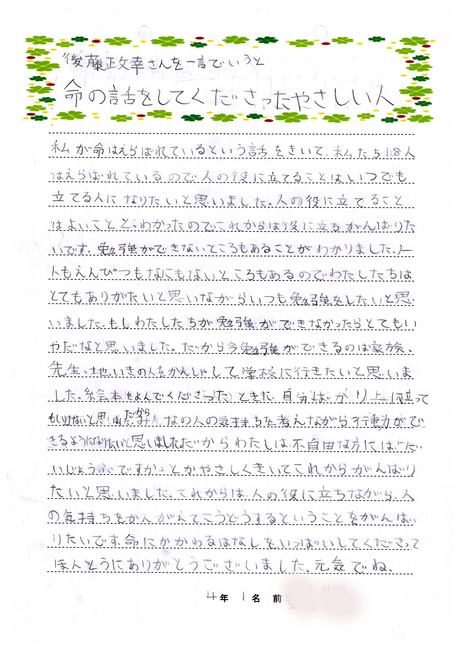 後藤正文幸さんを一言でいうと
命の話をしてくださったやさしい人
私が命はえらばれているという話をきいて、私たち 人
はえらばれているので人の役に立てることはいつでも
立てる人になりたいと思いました。人の役に立てること
はよいことと、わかったのでこれからは役に立ちがんばりた
いです。勉強ができないところもあることがわかりました。ノー
トもえんぴつもなにもないところもあるのでわたしたちは
とてもありがたいと思いながらいつも勉強をしたいと思
いました。もしわたしたちが勉強ができなかったらとてもい
やだなと思いました。だから今勉強ができるのは家族、
先生、地いきの人をかんしゃして学校に行きたいと思いま
した。絵本をよんでくださったときに、自分ばかり
もいけないと思ったから みんなの人の気持ちを考えながら行動がで
きるようになりたいと思いました。だからわたしは不自由な方には「だ
いじょうぶですか」とかやさしくきいてこれからがんばり
たいと思いました。これからは、人の役に立ちながら、人
の気持ちをかんがえてこうどうするということをがんば
りたいです。命にかかわるはなしをいっぱいしてくださって
ほんとうにありがとうございました。元気でね。
4年 1 名前